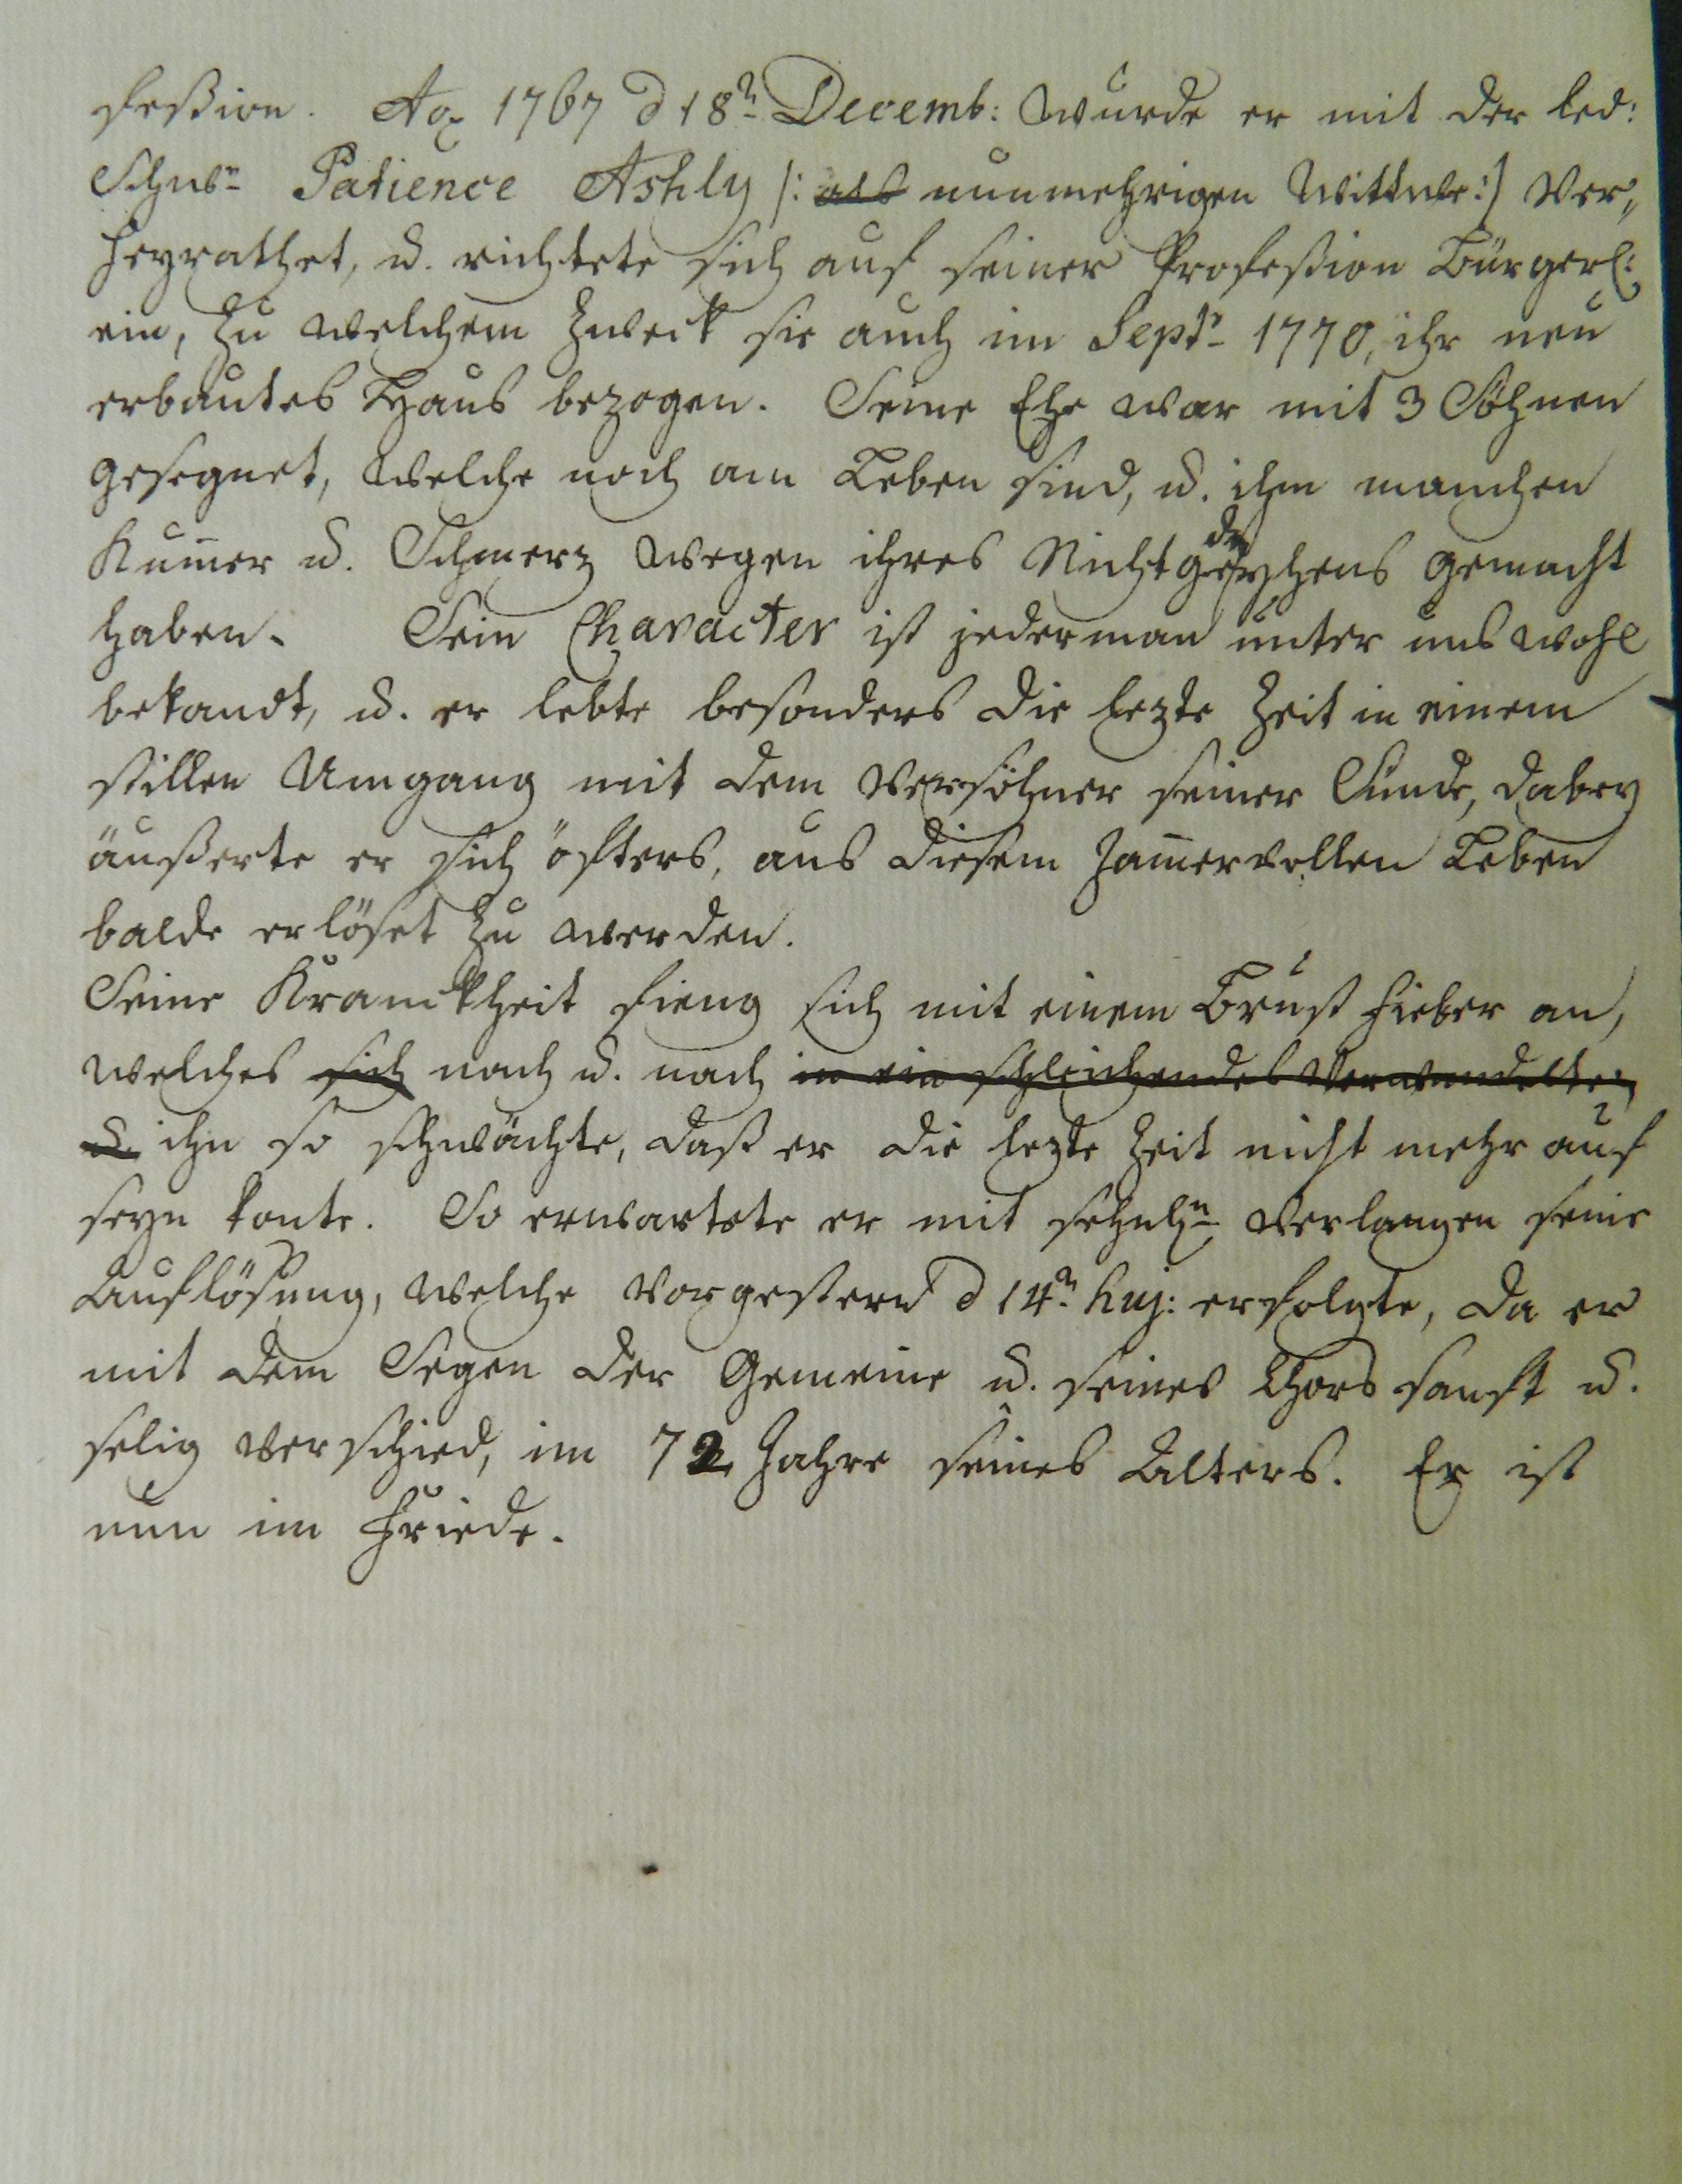 feßion. Ao. 1767 d 18n Decemb: wurde er mit der led:
Schwn Patience Ashly /: als nunmehrigen Wittwe :/ ver„
heyrathet, u. richtete sich auf seiner Profeßion Bürgerl:
ein, zu welchem Zweck sie auch im Septr 1770, ihr neu
erbautes Haus bezogen. Seine Ehe war mit 3 Söhnen
gesegnet, welche noch am Leben sind, u. ihm manchen
Kum̅er u. Schmerz wegen ihres Nichtgedeyhens gemacht
haben. Sein Character ist jederman unter uns wohl
bekandt, u. er lebte besonders die lezte Zeit in einem
stillen Umgang mit dem Versöhner seiner Sünde, dabey
äußerte er sich öfters, aus diesem Jam̅ervollen Leben
balde erlöset zu werden.
Seine Kranckheit fieng sich mit einem Brust fieber an,
welches sich nach u. nach in ein schleichendes verwandelte,
u. ihn so schwächte, daß er die lezte Zeit nicht mehr auf
seyn konte. So erwartete er mit sehnln Verlangen seine
Auflösung, welche vorgestern d 14n huj: erfolgte, da er
mit dem Segen der Gemeine u. seines Chors sanft u.
selig verschied, im 72 Jahre seines Alters. Er ist
nun im Friede.